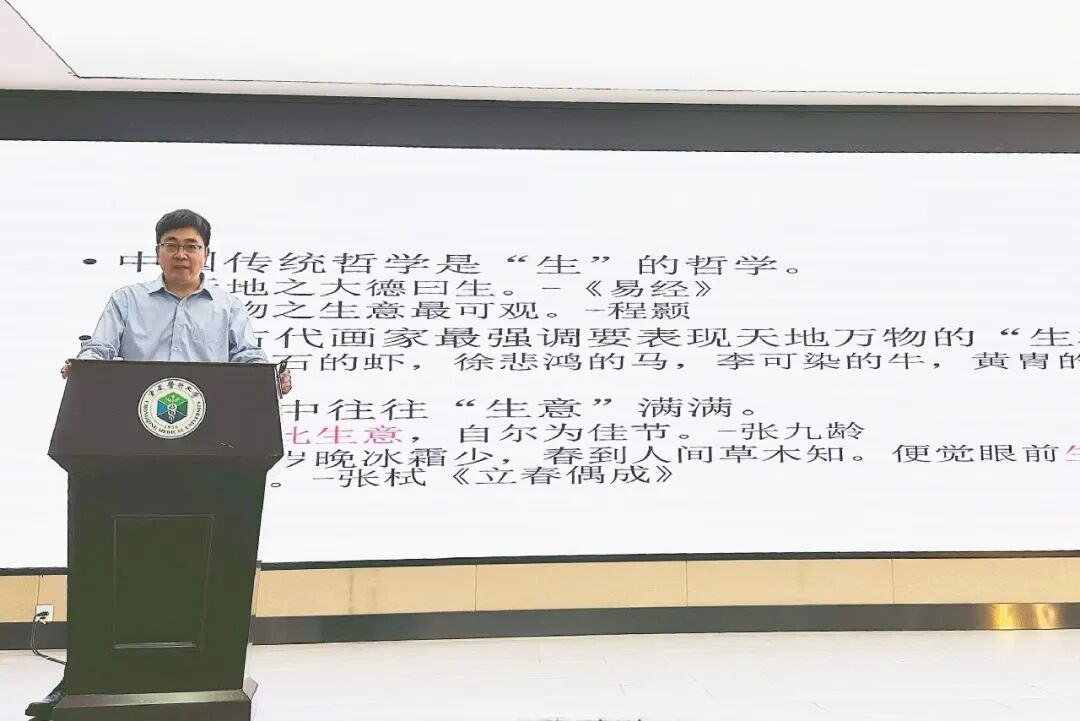 • 中国传统哲学是“生”的哲学。
天地之大德曰生。-《易经》
物之生意最可观。-程颢
古代画家最强调要表现天地万物的“生
石的虾，徐悲鸿的马，李可染的牛，黄胄的
中往往“生意”满满。
此生意，自尔为佳节。-张九龄
岁晚冰霜少，春到人间草木知。便觉眼前生
。-张栻《立春偶成》
重庆医科大学
CHONGQING MEDICAL UNIVERSITY
1956